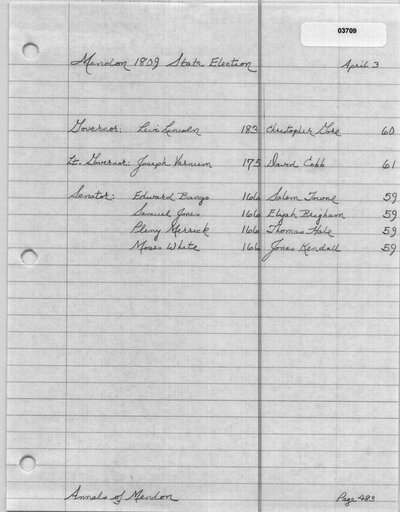 03709
Mendon 1809 State Election April 3
Governor: Levi Lincoln 183 Christopher Gore 60
Lt. Governor: Joseph Varnum 175 David Cobb 61
Senator: Edward Bangs 166 Salem Towne 59
Samuel Jones 166 Elijah Brigham 59
Pliny Merrick 166 Thomas Hale 59
Moses White 166 Jonas Kendall 59
Annals of Mendon Page 483